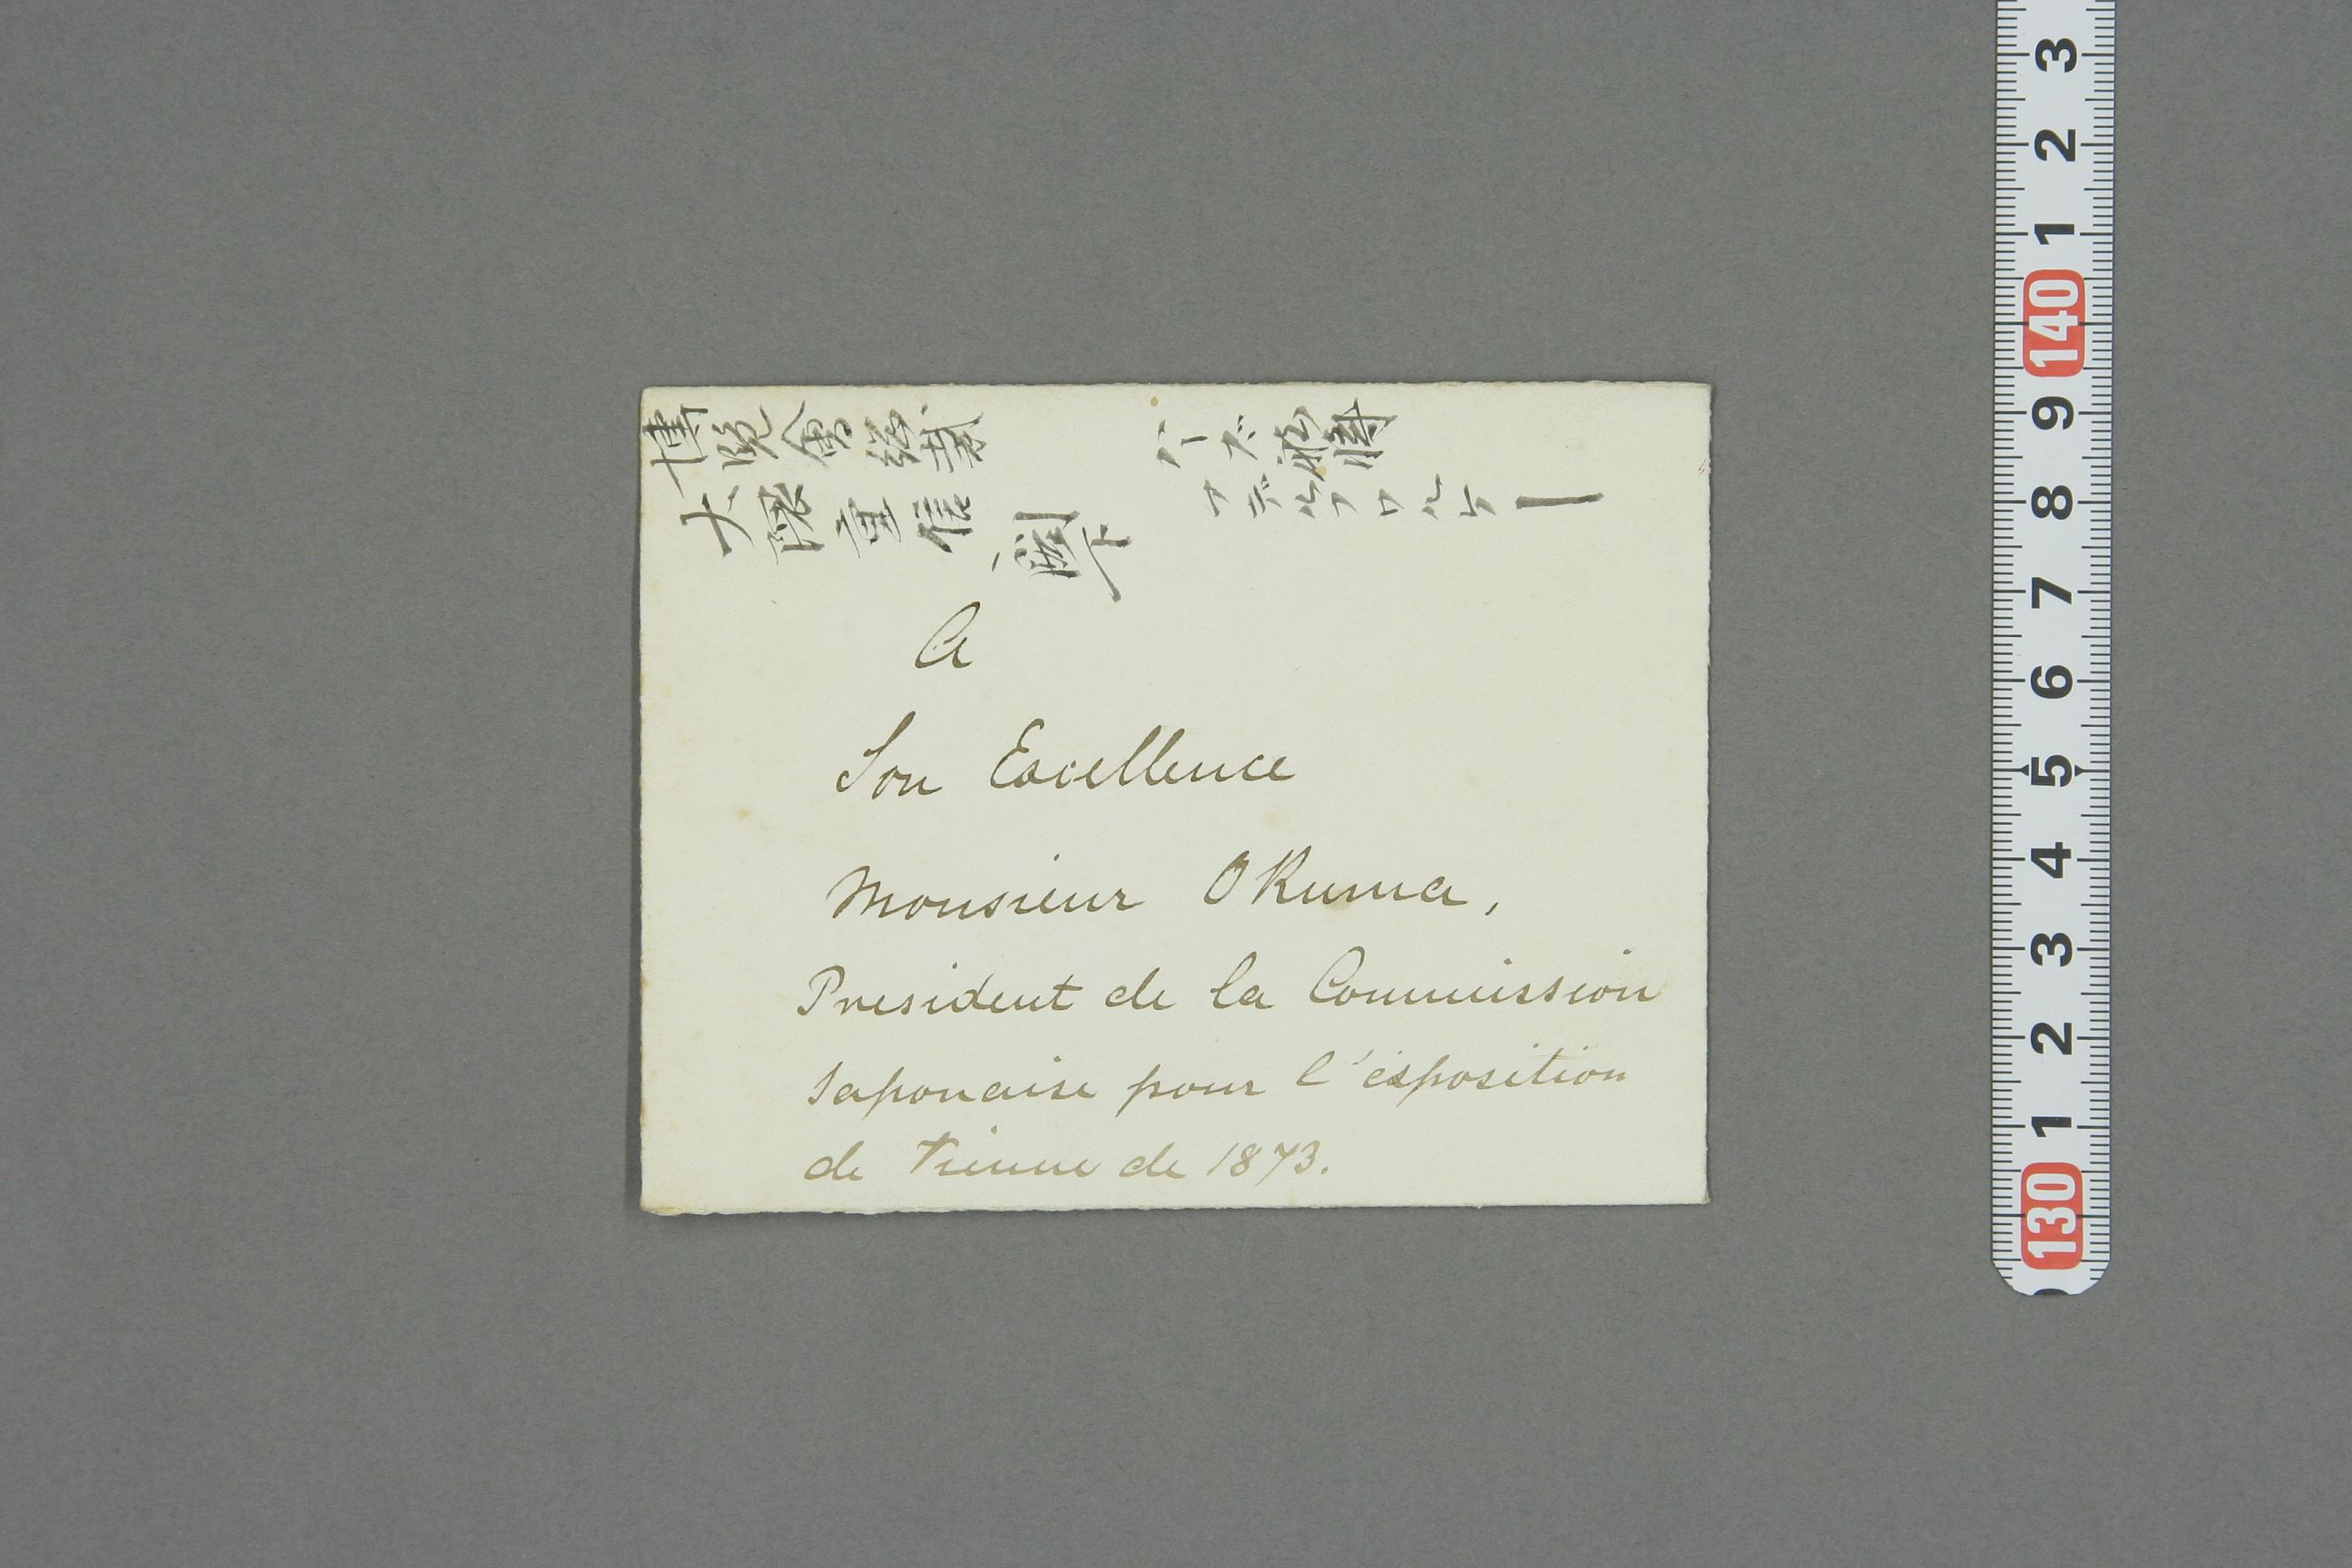 博覽會総裁
大隈重信
閣下
A
Son Excellence
Monsieur Okuma,
President de la Commission
Japonaise pour l'exposition
de Vienne de 1873.
3
2
1
140
9
8
7
6
5
4
3
2
1
130